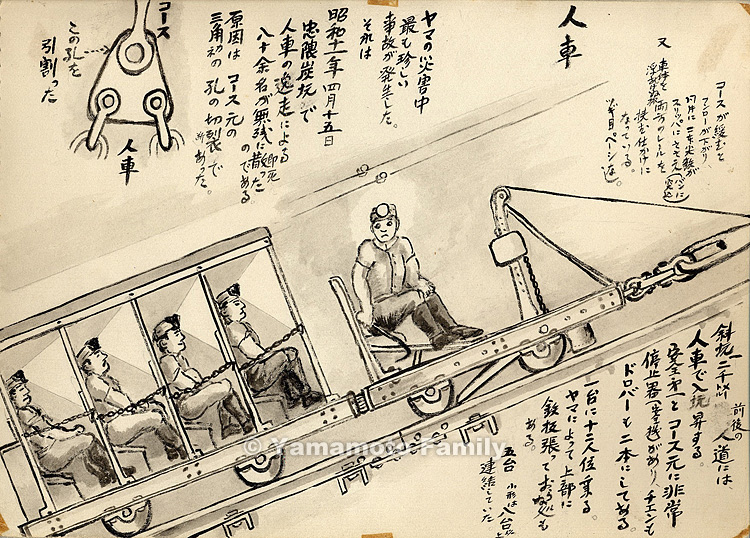 人車
コースが緩むと
アローが下がり
スリッパにささえ
又 車体を浮かせぬ為
両方のレールを
挟む仕かけに
なっている
ヤマの災害中
最も珍しい
事故が発生した。
それは
昭和十一年四月十五日
忠隈炭坑で
人車の逸走による
八十余名が無残に散った
のである
原因は コース元の
三角初の 孔の切裂で
あった。
コース
この孔を
引割った
人車
斜坑 二千米 前後の 人道には、
人車で入坑昇する。
安全第一と コース元に非常
停止器 があり、チエンも
ドロバーも二本にしてある
一台に十二人位乗る。
ヤマによって上部に
鉄板張で
ある。
五台 小形は八台
連結していた
© Yamamoto Family